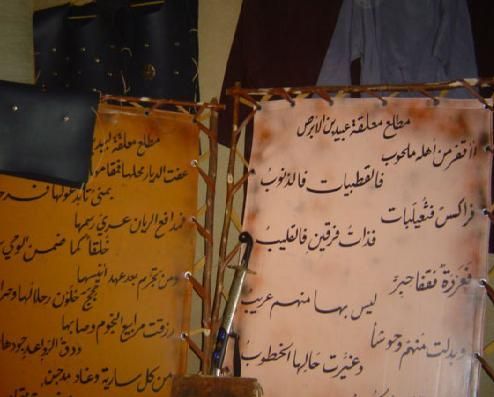 مطلع معلقة عبيد بن الأبرص
أأقفر من أهله ملحوب
فالقطبيات فالذنوب
فراكس فثعيلبات
فذات فرقين فالقليب
فعردة فقفا حبر
ليس بها منهم عريب
وبدلت منهم وحوشا
وغيرت حالها الخطوب
مطلع معلقة لبيد
عفت الديار محلها
بمنى تأبد غولها
فمدافع الريان عري رسمها
خلقا كما ضمن الوحي
دمن تجرم بعد عهد أنيسها
حجج خلون حلالها
رزقت مرابيع النجوم وصابها
ودق الرواعد جودها
من كل سارية وغاد مدجن